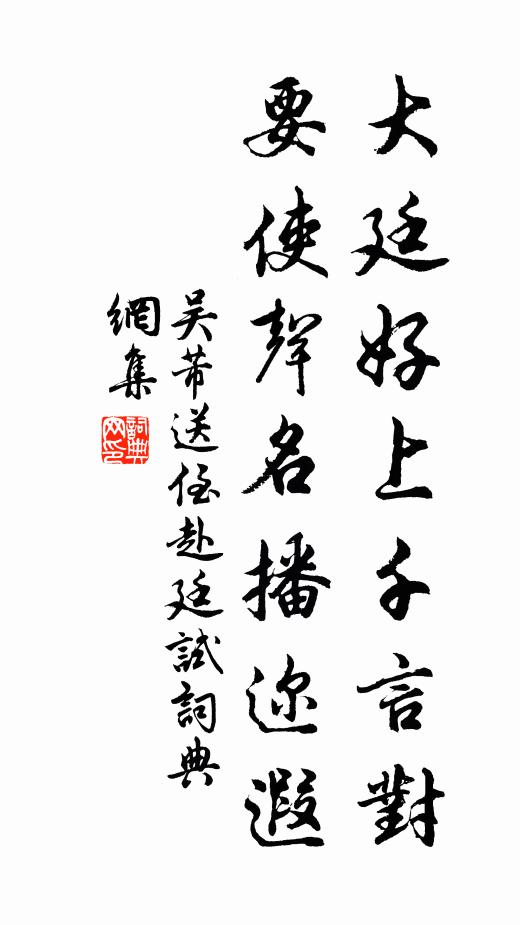 大廷好上千言對
要使聲名播迩遐
吳芾送侄赴廷試詞典
網集
詞典網印